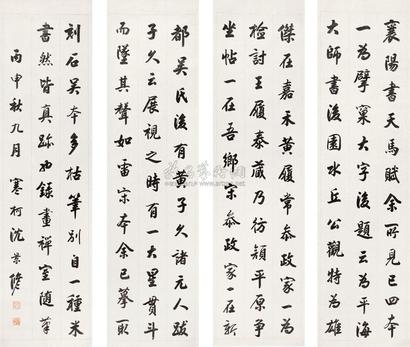 襄陽書天馬賦余所見已四本
一為擘窠大字後題云為平海
大師書後園水丘公觀特為雄
傑在嘉禾黃履常叅政家一為
檢討王履泰藏乃彷頴平原争
坐帖一在吾鄉宗叅政家一在新
都吴氏後有黃子久諸元人跋
子久云展視之時有一大星貫斗
而墜其聲如雷宗本余已摹取
刻石吴本多枯筆別自一種米
書然皆真跡也錄畫禪室隨筆
丙申秋九月寒柯沈景修